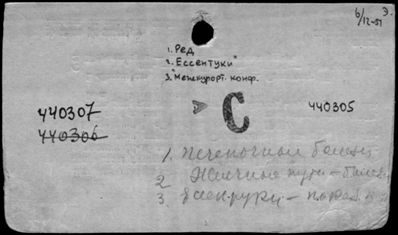 6/12-51 Э.
1. Ред
2. Ессентуки"
3. "Межкурорт. конф.
440307
440306
С
440305
1. Печеночные болезн
2 Желчные пути –
3